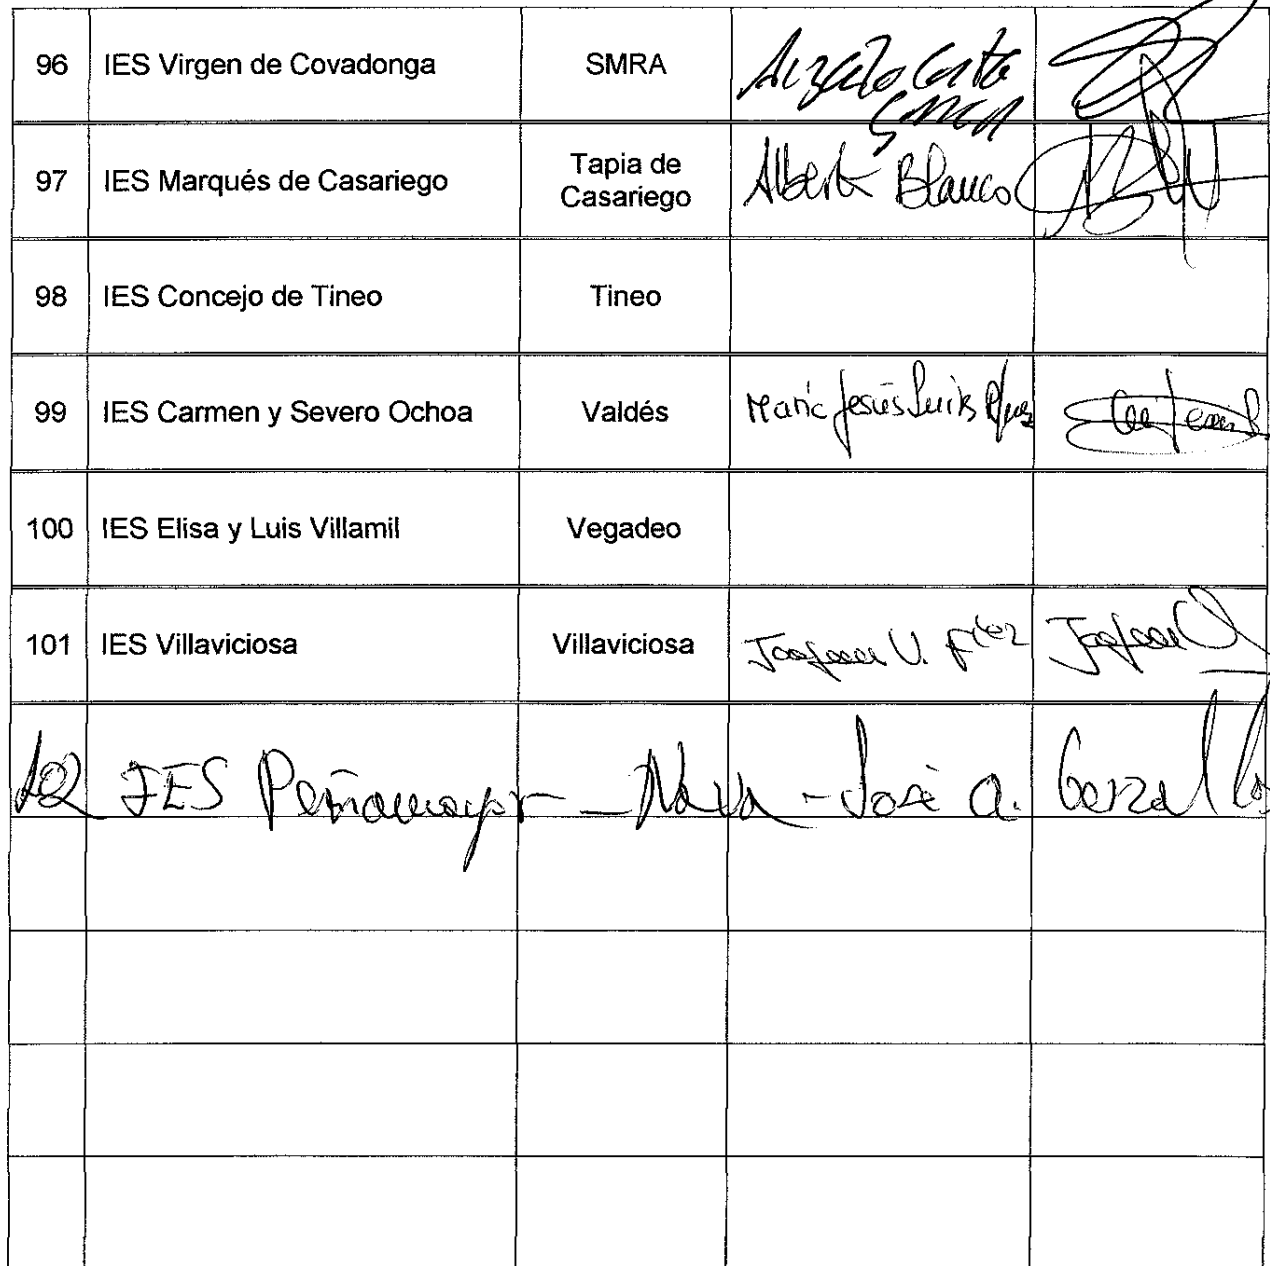 96 IES Virgen de Covadonga SMRA
97 IES Marqués de Casariego Tapia de Casariego Alberto Blanco
98 IES Concejo de Tineo Tineo
99 IES Carmen y Severo Ochoa Valdés María Jesús
100 IES Elisa y Luis Villamil Vegadeo
101 IES Villaviciosa Villaviciosa
102 IES Peñamayor - Nava - José A.